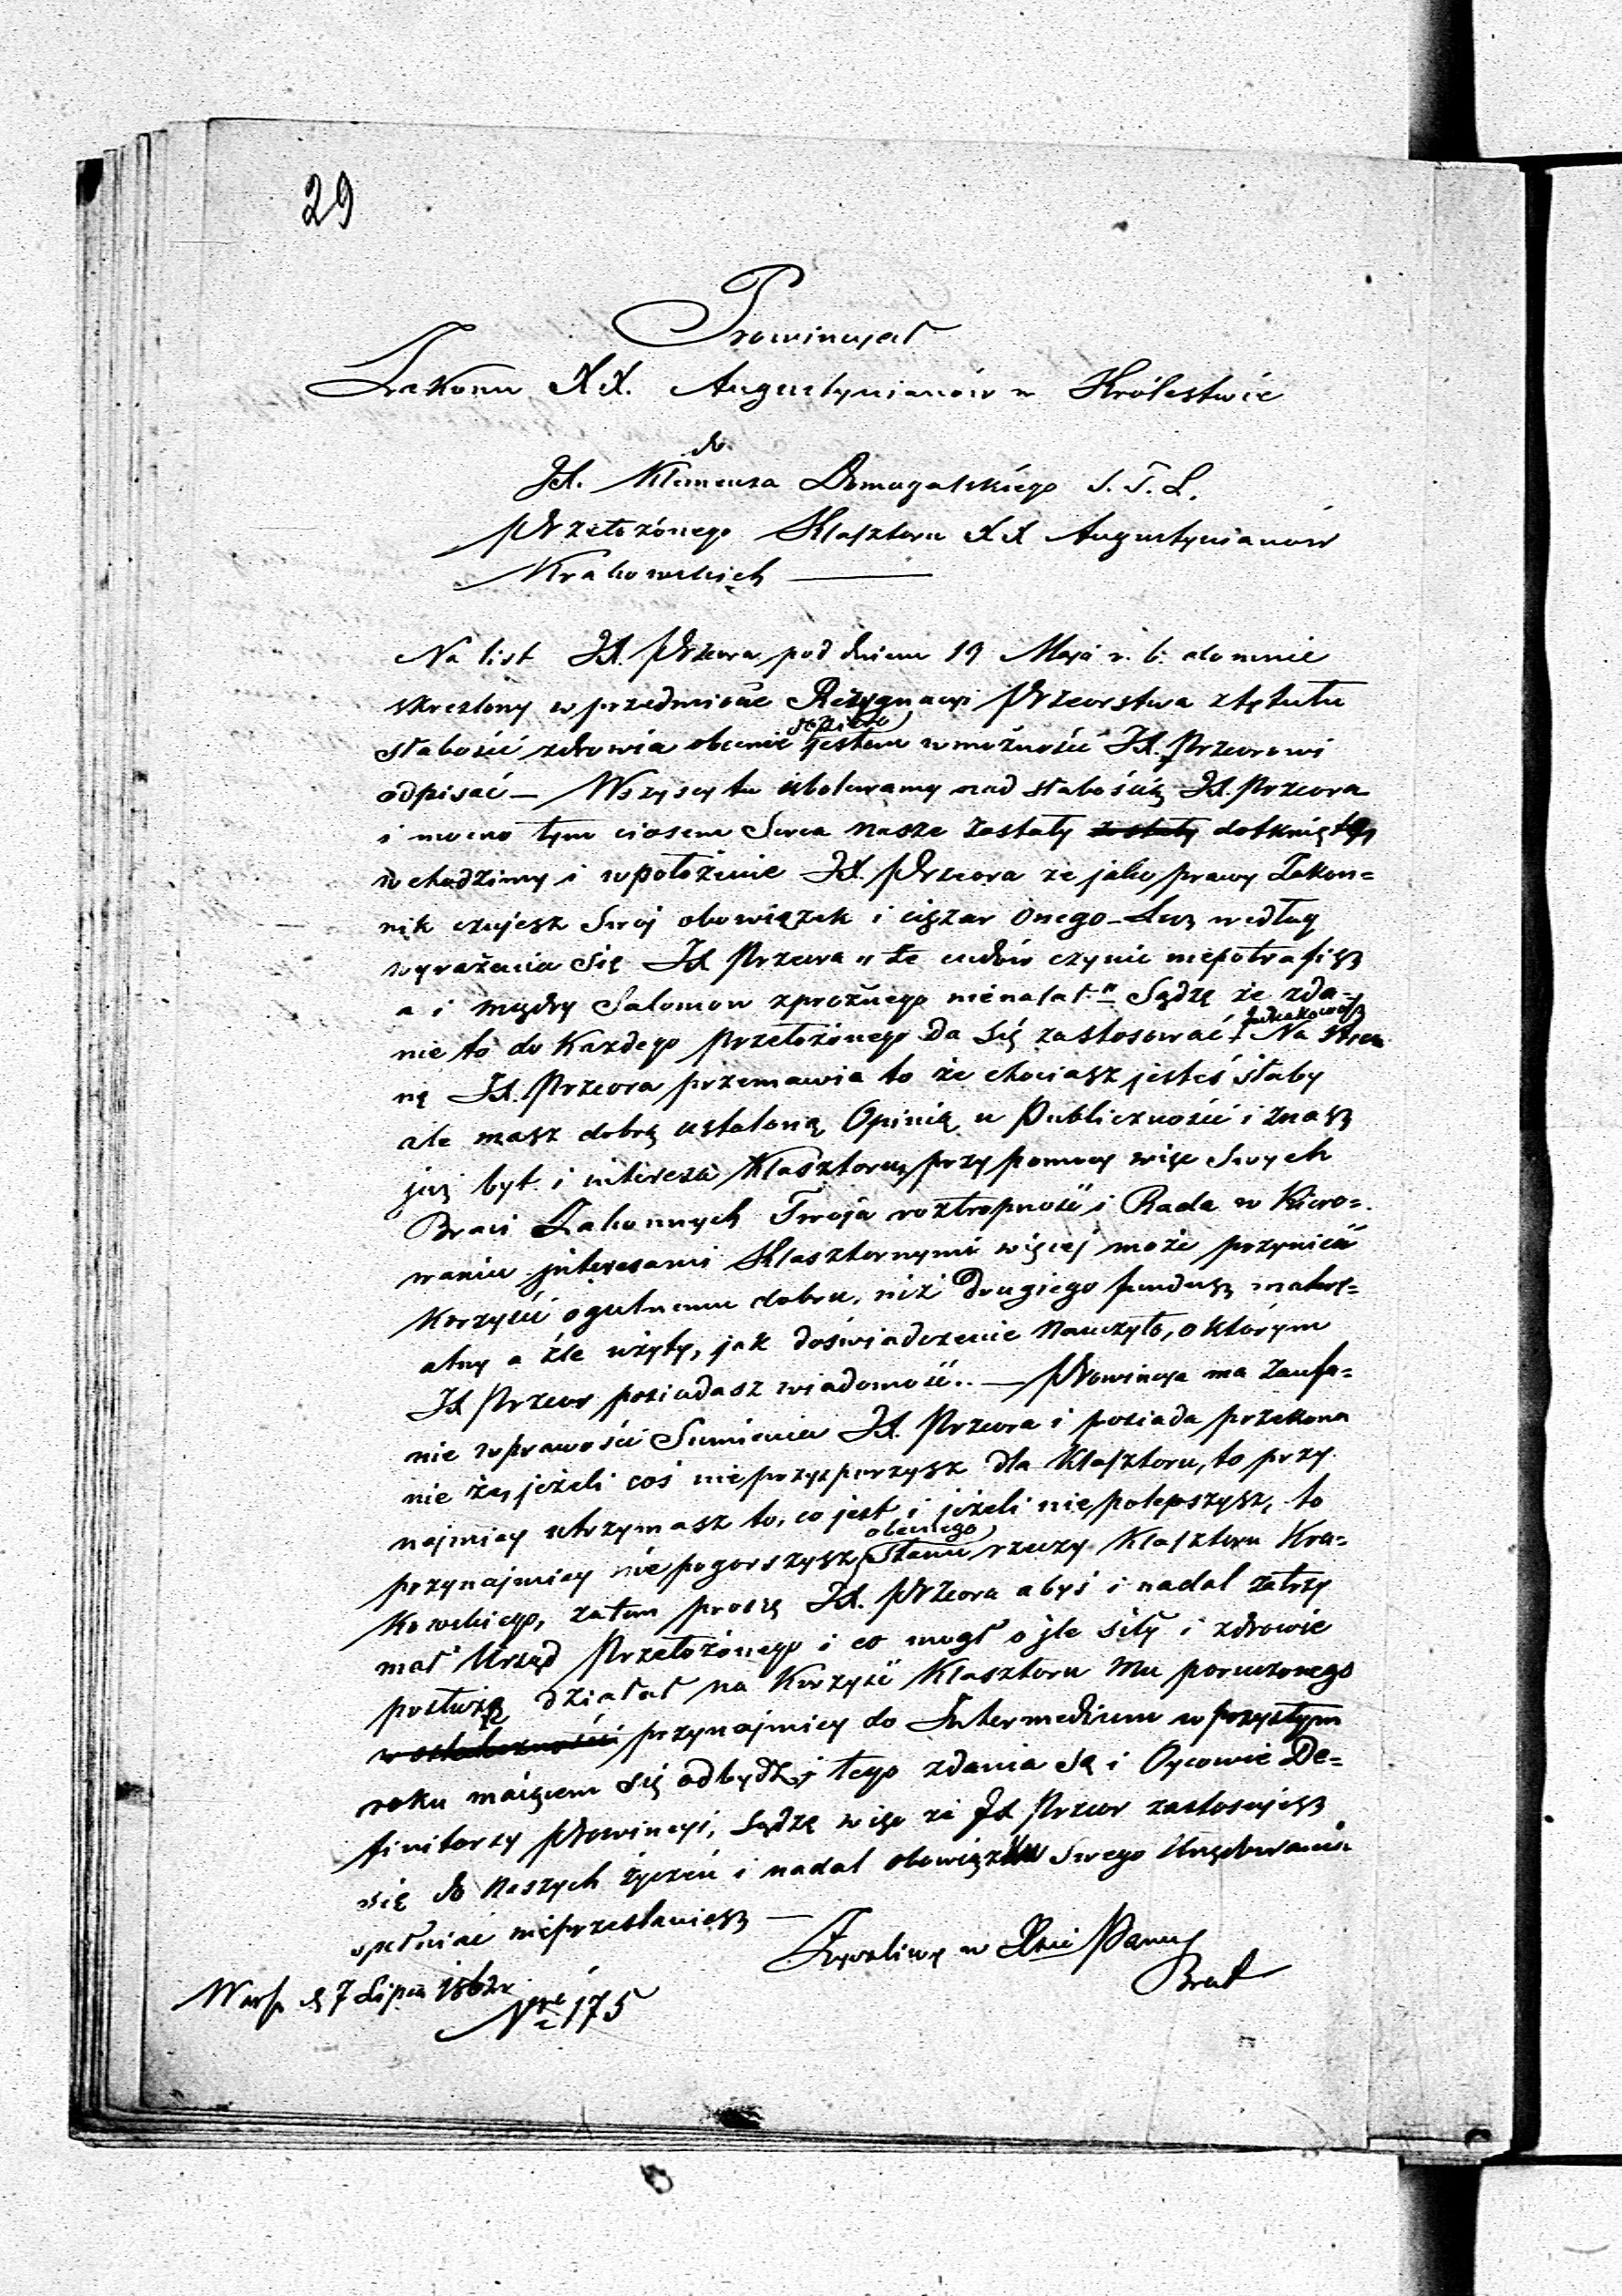 29
Prowincyał
Zakonu XX. Augustynianów w Królestwie
do
JX. Klemensa Domagalskiego S. T. L.
Przełożonego Klasztoru XX Augustynianów
Krakowskich —
Na list JX. Przeora pod dniem 19 Maja r. b. do mnie
skreślony w przedmiocie Rezygnacyi Przeorstwa z tytułu
słabości zdrowia obecnie dopiero jestem w możności JX. Przeorowi
odpisać — Wszyscy tu ubolewamy nad słabością JX. Przeora
i mocno tym ciosem Serca nasze zostały zostały dotknięte,
wchodzimy i w położenie JX. Przeora że jako prawy Zakon=
nik czujesz Swój obowiązek i ciężar onego — Lecz według
wyrażenia się JX Przeora „że cudów czynić niepotrafisz
a i mądry Salomon z prożnego nienalał" — Sądzę że zda=
nie to do każdego Przełożonego da się zastosować. Jednakowoż Na stro
nę JX. Przeora przemawia to że chociasz jesteś słaby
ale masz dobrą ustaloną Opinią u Publiczności i znasz
już byt i interesa Klasztoru, przy pomocy więc Swych
Braci Zakonnych Twoja roztropność i Rada w Kiero=
waniu interesami Klasztornymi więcej może przynieść
Korzyści ogulnemu dobru, niż drugiego fundusz matery=
alny a źle użyty, jak doświadczenie nauczyło, o którym
JX Przeor posiadasz wiadomość.. — Prowincya ma zaufa=
nie w prawości Sumienia JX. Przeora i posiada przekona
nie że, jeżeli coś nie przysporzysz dla Klasztoru, to przy
najmiey utrzymasz to, co jest, i jeżeli niepolepszysz, to
przynajmiey nie pogorszysz obecnego Stanu rzeczy Klasztoru Kra=
kowskiego, zatem proszę JX. Przeora abyś i nadal zatrzy
mał Urząd Przełożonego i co mogł o jle siły i zdrowie
posłużą działał na Korzyść Klasztoru Mu poruczonego
przynajmiey do Intermedium w przyszłym
roku maiącem się odbydź, i tego zdania są i Oycowie De=
finitorzy Prowincyi, Sądzę więc że JX Przeor zastosujesz
się do Naszych życzeń i nadal obowiązku Swego Urzędowania
spełniać nieprzestaniesz —
Życzliwy w Xcie Panu
Brat
Warsz. d. 7 Lipca 1862 r.
Nre 175